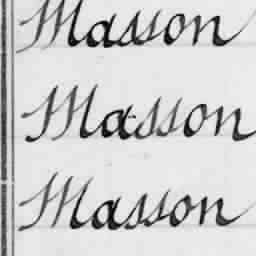 Masson
Masson
Masson